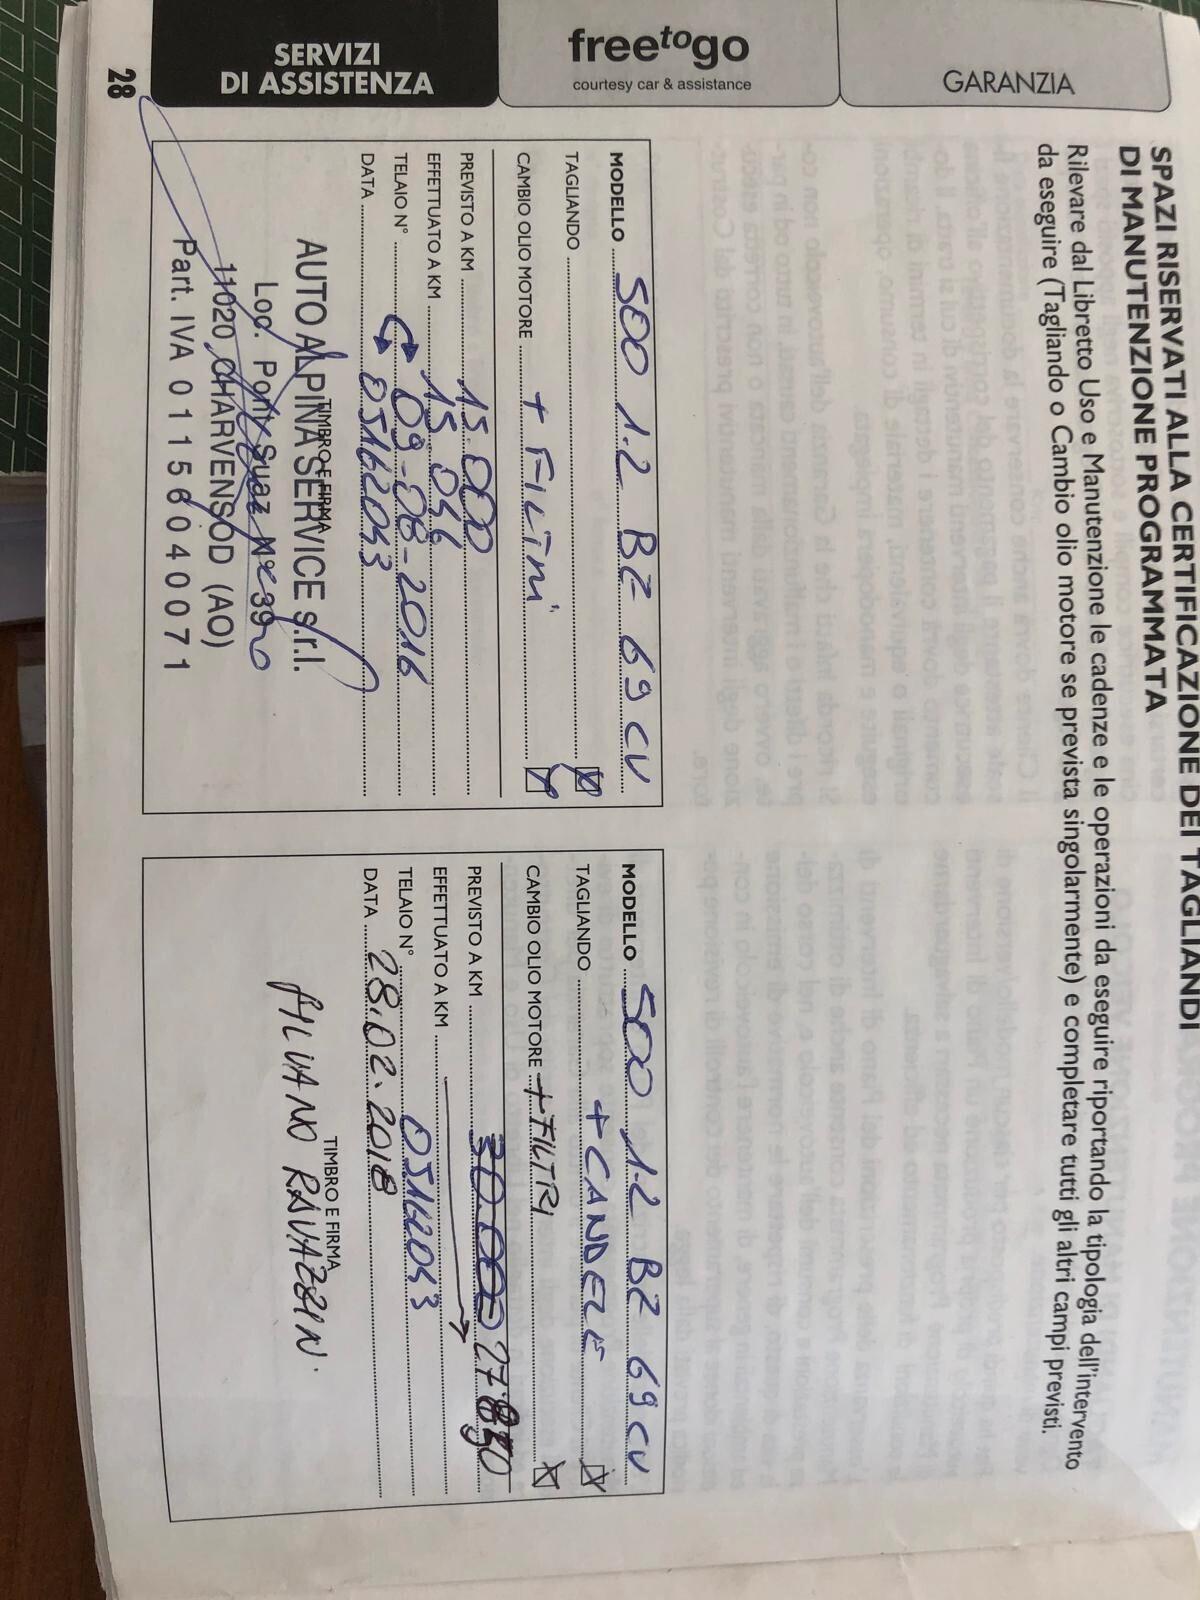 SPAZI RISERVATI ALLA CERTIFICAZIONE DEI TAGLIANDI
DI MANUTENZIONE PROGRAMMATA
Rilevare dal Libretto Uso e Manutenzione le cadenze e le operazioni da eseguire riportando la tipologia dell'intervento
da eseguire (Tagliando o Cambio olio motore se prevista singolarmente) e completare tutti gli altri campi previsti.
GARANZIA
freetogo
courtesy car & assistance
SERVIZI
DI ASSISTENZA
MODELLO 500 1.2 BZ 69 CV
TAGLIANDO
CAMBIO OLIO MOTORE + FILTRI
PREVISTO A KM 15.000
EFFETTUATO A KM 15 046
TELAIO N° 09-08-2016
DATA 05162043
TIMBRO E FIRMA
AUTO ALPINA SERVICE s.r.l.
Loc. Pont Suaz N° 39
11020 CHARVENSOD (AO)
Part. IVA 01156040071
MODELLO 500 1.2 BZ 69 CV
TAGLIANDO + CANDELE
CAMBIO OLIO MOTORE + FILTRI
PREVISTO A KM 30.000 27.850
EFFETTUATO A KM
TELAIO N° 05162043
DATA 28.02.2018
TIMBRO E FIRMA
28